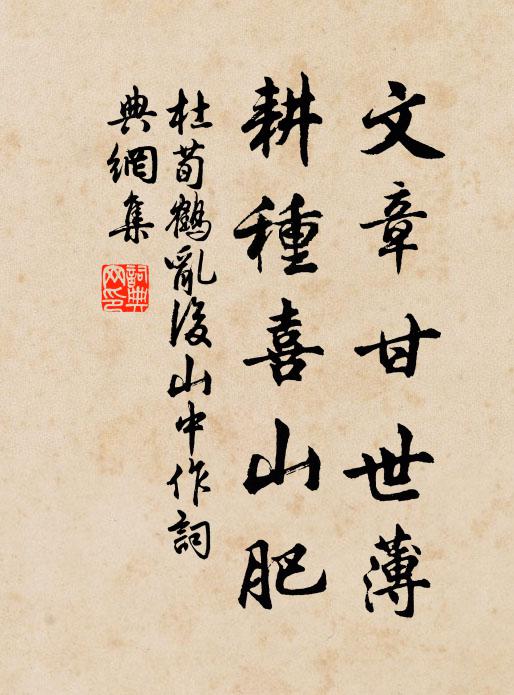 文章甘世薄
耕種喜山肥
杜荀鶴亂後山中作詞
典網集
詞典网印